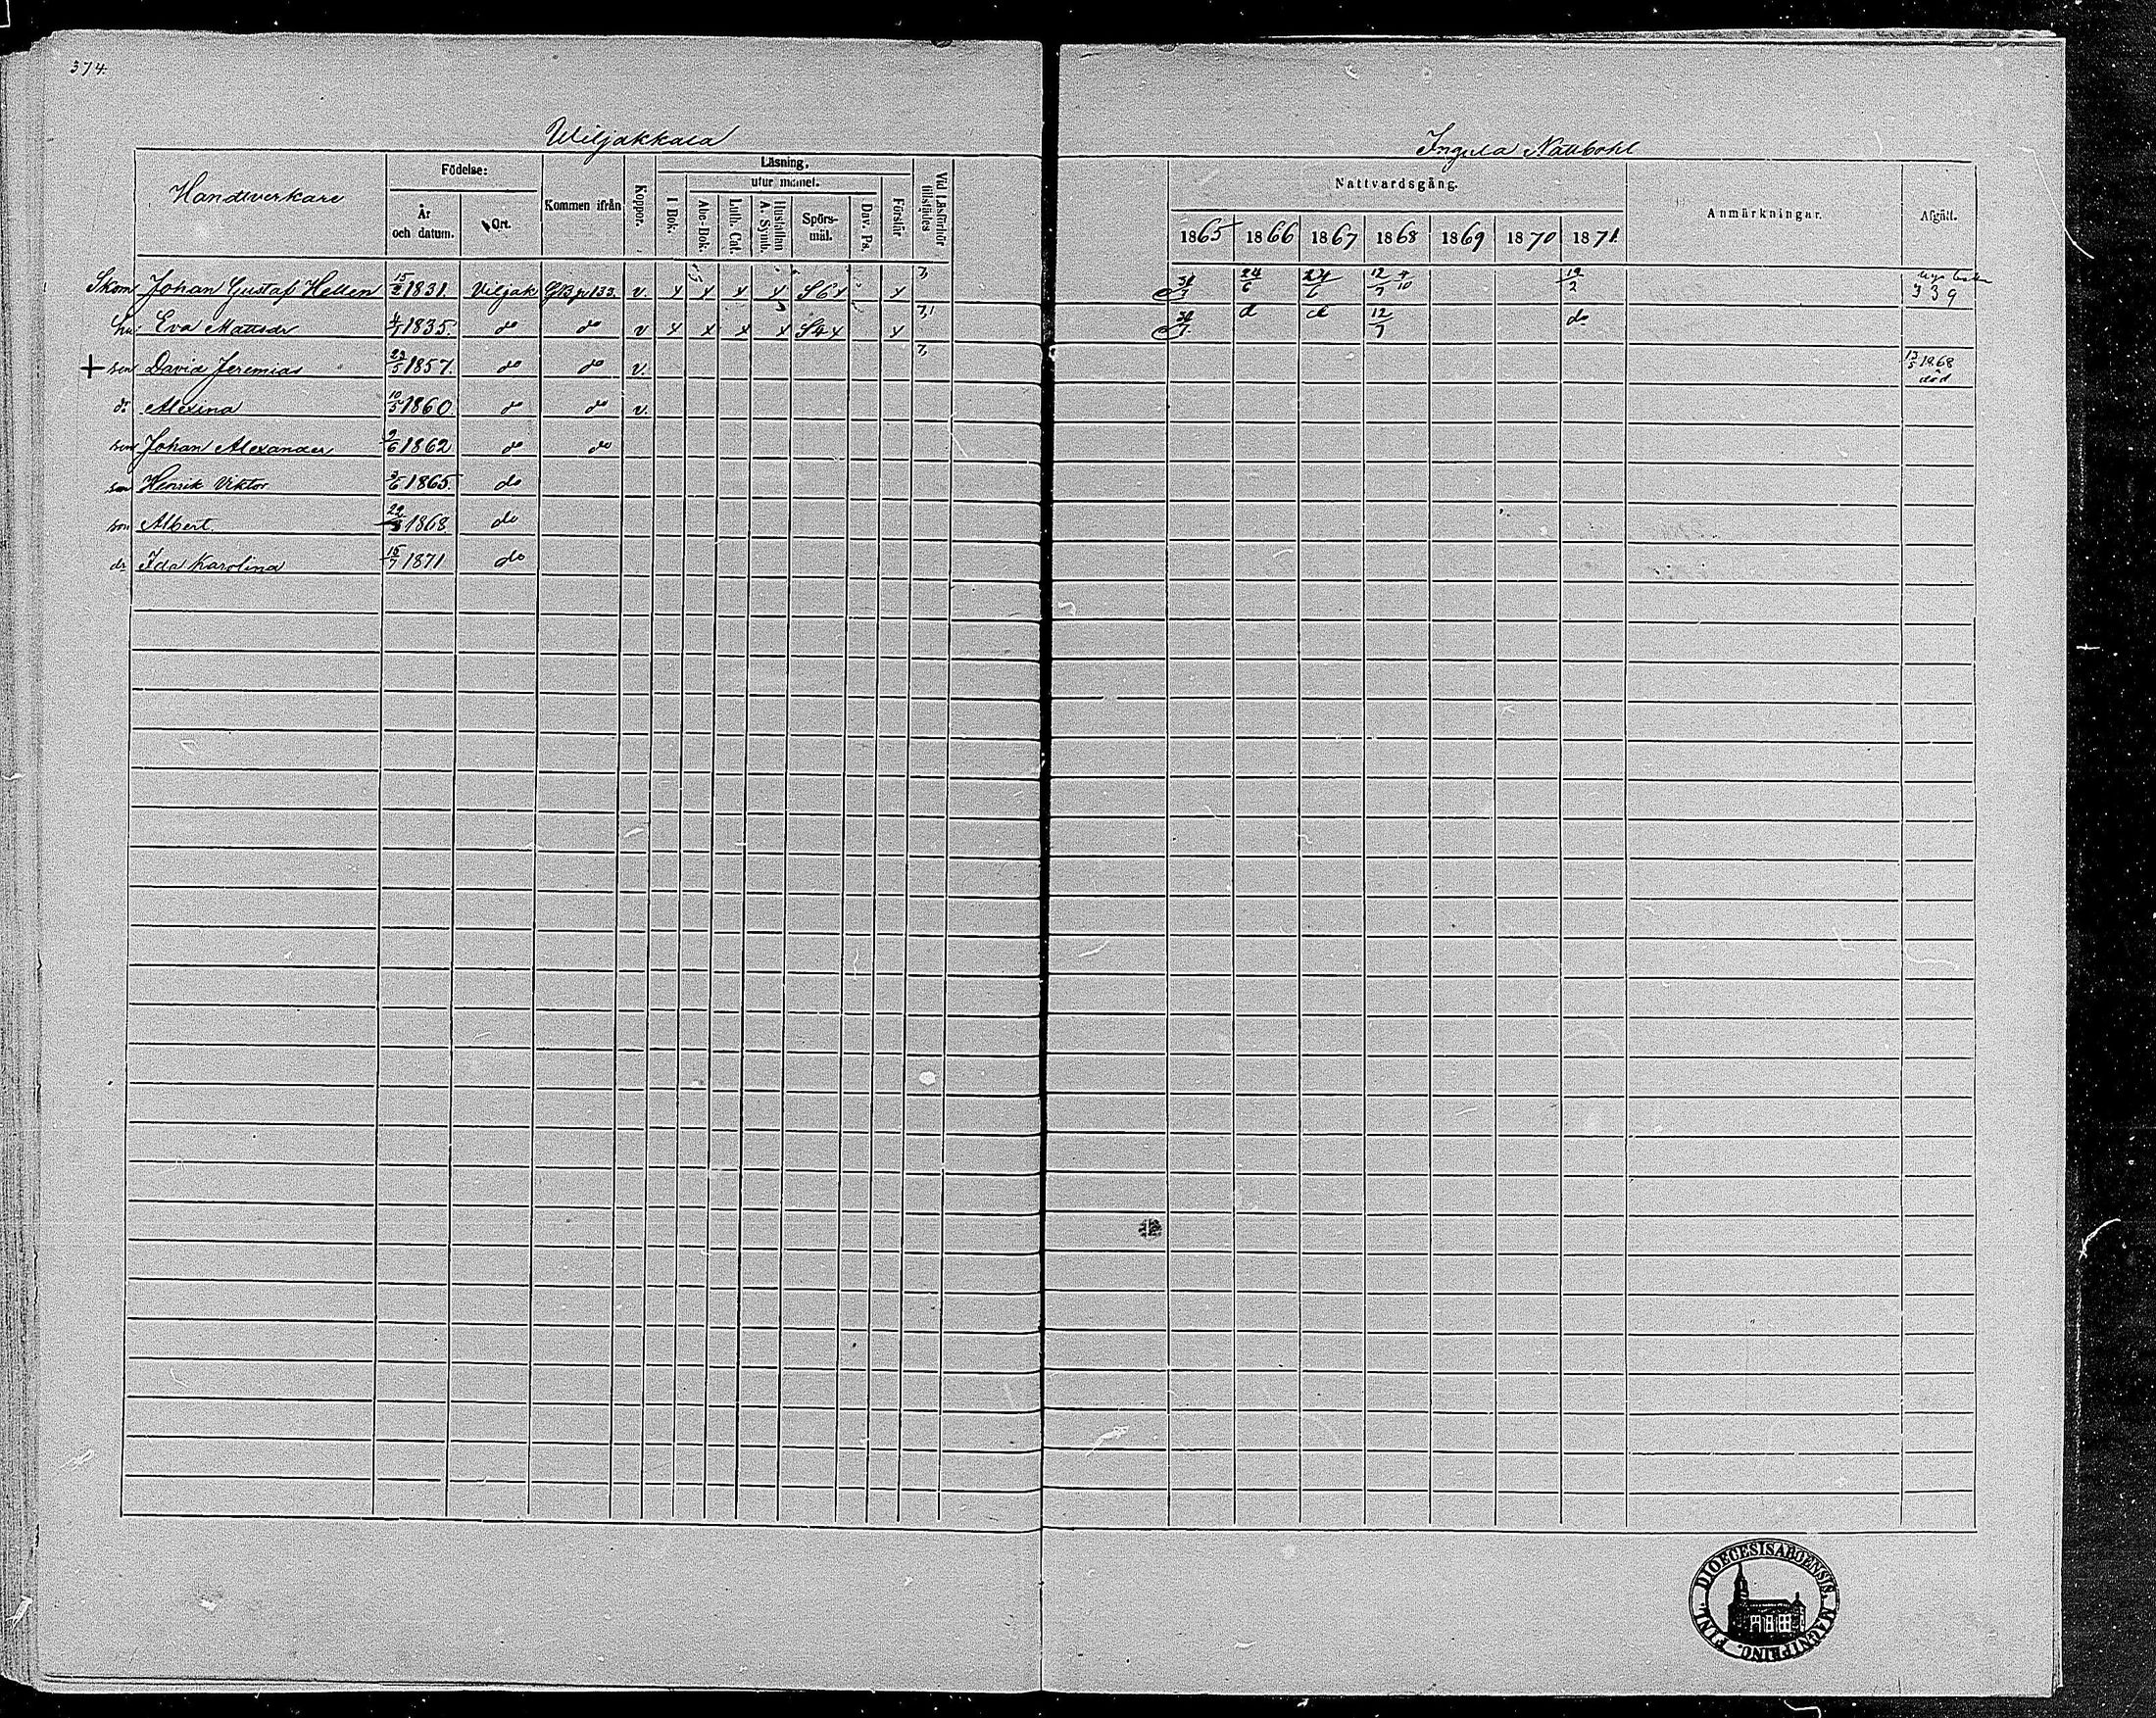 374.
Wiljakkala
Handtverkare
Födelse:
År och datum.
Ort.
Kommen ifrån
Koppor.
Läsning,
I Bok.
utur minnet.
Abc-Bok.
Luth. Cat.
Hustaflan A. Symb.
Spörsmål.
Dav. Ps.
Förstår
Vid Läsförhör tillstädes
Skom Johan Gustaf Hellen 15/2 1831. Viljak GKB p 133. v. x x x x S6x x 7,
hu. Eva Mattsdr 4/5 1835. do do v x x x x S4x x 7,1
+ son David Jeremias 23/5 1857. do do v. 7,
dr Alexina 10/5 1860. do do v.
son Johan Alexander 9/6 1862 do do
son Henrik Viktor 3/6 1865. do
son Albert 22/3 1868. do
dr Ida Karolina 15/7 1871 do
Ingula Nattbohl
Nattvardsgång.
1865 1866 1867 1868 1869 1870 1871.
Anmärkningar.
Afgått.
24/6 12/7 4/10 12/2 339
d d 12/7 do
13/5 1868 död
DIOECESIS ABOENSIS. MAGNI PRINC. FINL.